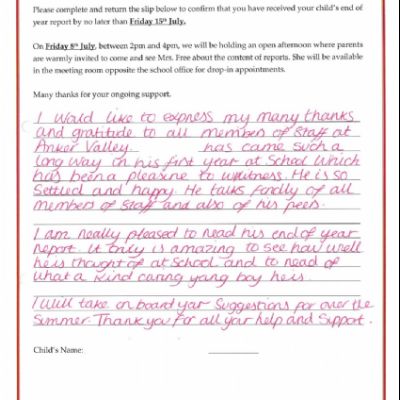 Please complete and return the slip below to confirm that you have received your child's end of
year report by no later than Friday 15th July.
On Friday 8th July, between 2pm and 4pm, we will be holding an open afternoon where parents
are warmly invited to come and see Mrs. Free about the content of reports. She will be available
in the meeting room opposite the school office for drop-in appointments.
Many thanks for your ongoing support.
I would like to express my many thanks
and gratitude to all member of staff at
Anker Valley. has came such a
long way on his first year at School which
has been a pleasure to witness. He is so
Settled and happy. He talks fondly of all
members of staff and also of his peers.
I am really pleased to read his end of year
report. it truly is amazing to see how well
he is thought of at School and to read of
what a kind caring yang boy he is.
I will take on board your Suggestions for over the
Summer. Thank you for all your help and Support.
Child's Name: